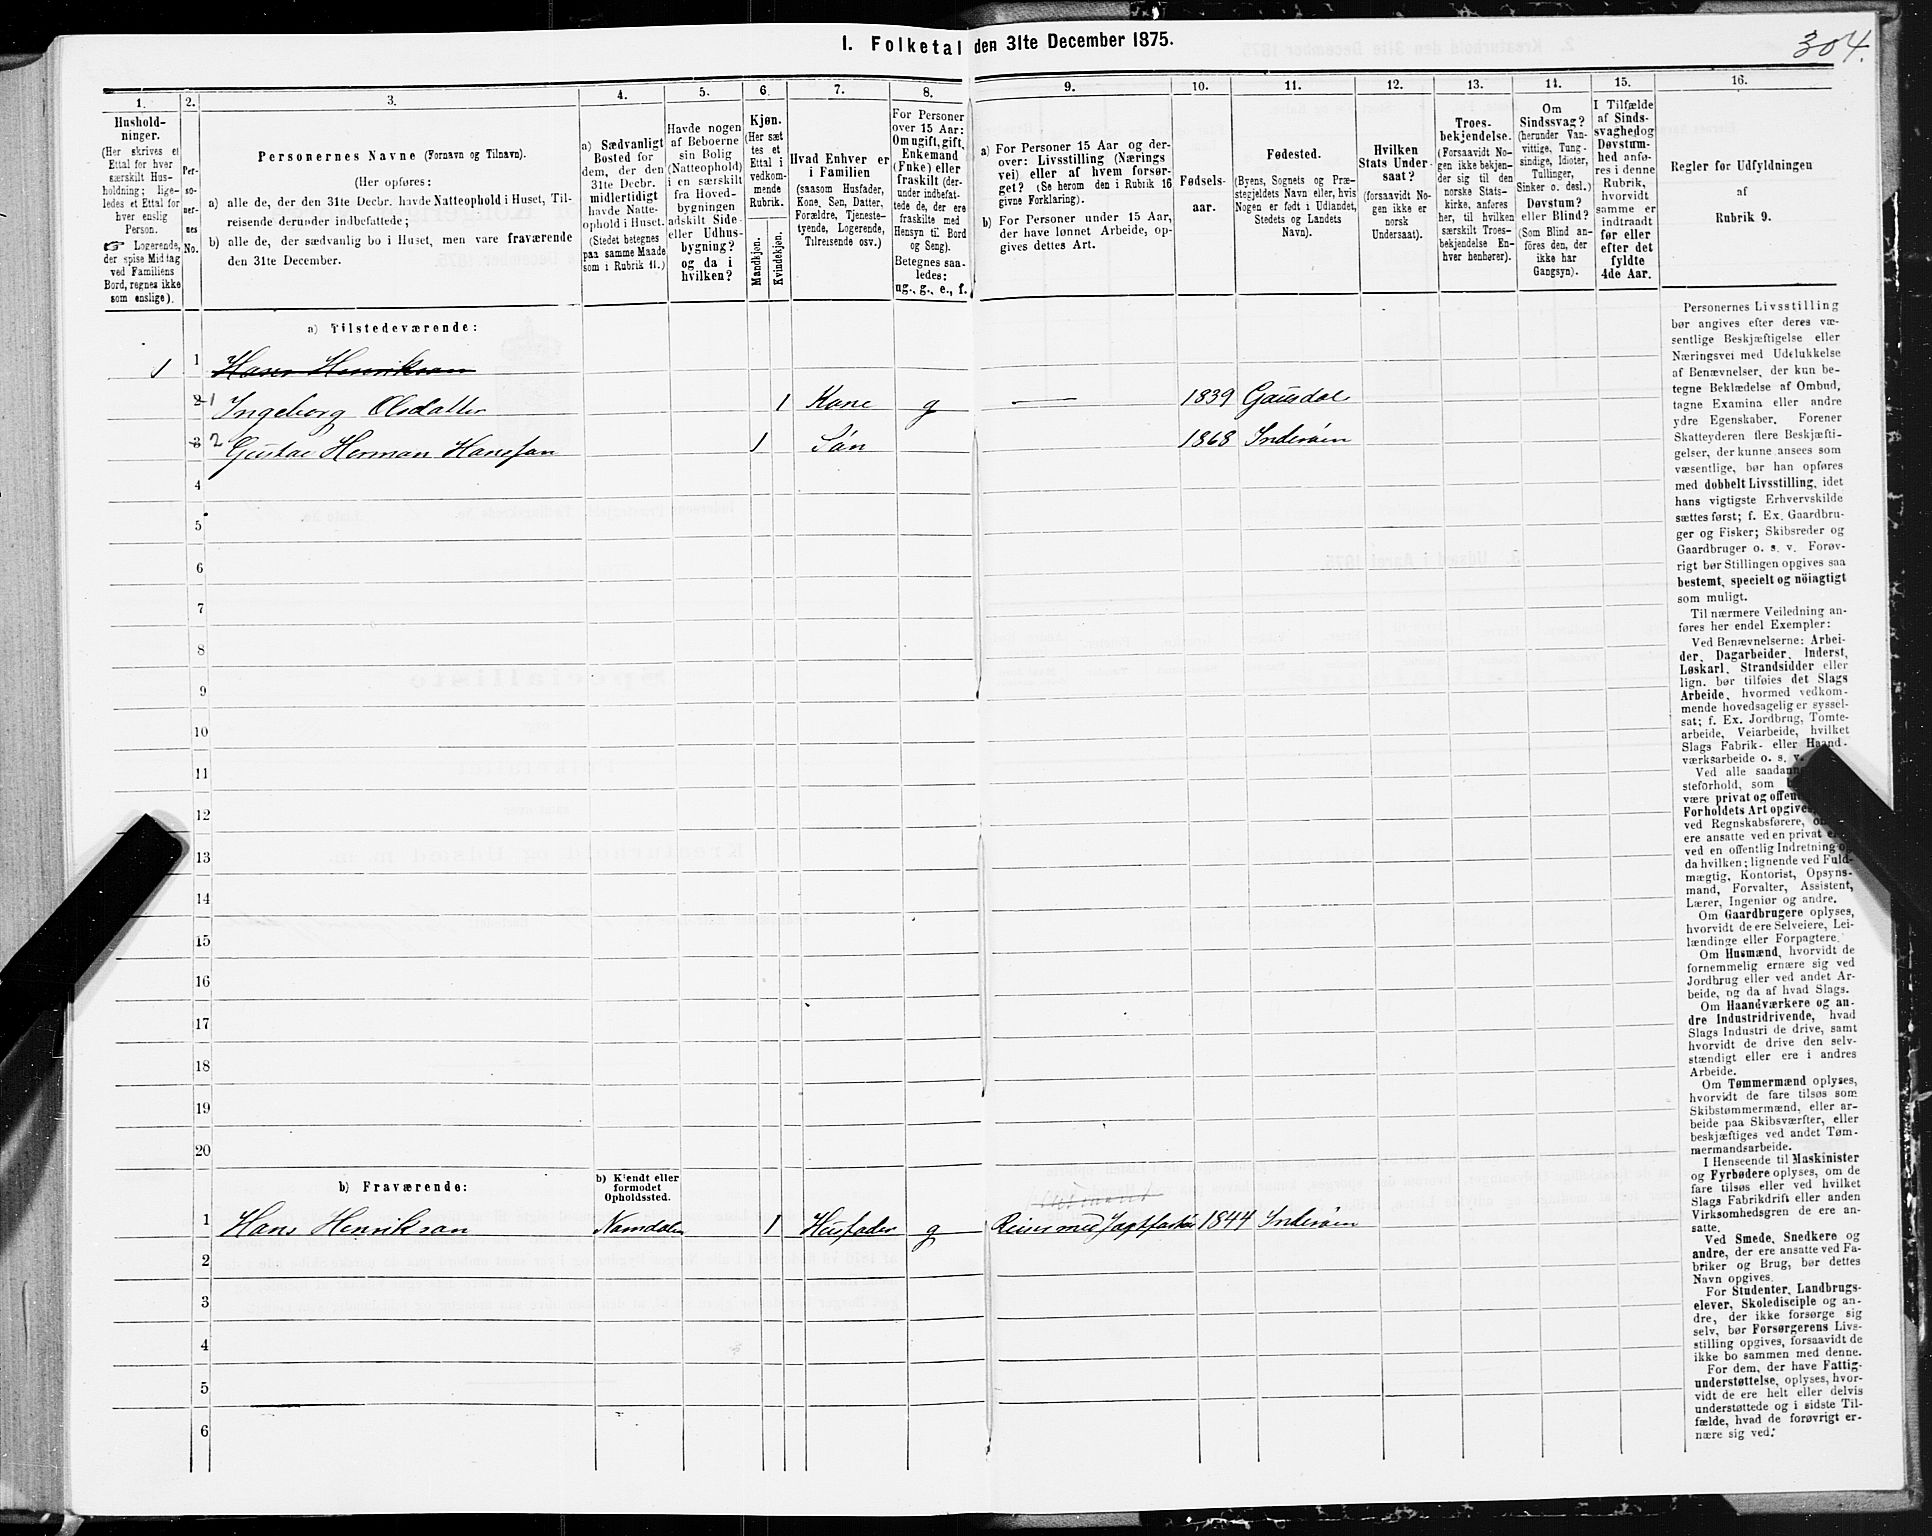 I. Folketal den 31te December 1875.
304.
1.
2.
3.
4.
5.
6.
7.
8.
9.
10.
11.
12.
13.
14.
15.
16.
Hushold-
ninger.
(Her skrives et
Ettal for hver
særskilt Hus-
holdning; lige-
ledes et Ettal for
hver enslig
Person.
☞ Logerende,
der spise Middag
ved Familiens
Bord, regnes ikke
som enslige).
Per-
so-
ner-
nes
No.
Personernes Navne (Fornavn og Tilnavn).
(Her opføres:
a) alle de, der den 31te Decbr. havde Natteophold i Huset, Til-
reisende derunder indbefattede;
b) alle de, der sædvanlig bo i Huset, men vare fraværende
den 31te December.
a) Sædvanligt
Bosted for
dem, der den
31te Decbr.
midlertidigt
havde Natte-
ophold i Huset.
(Stedet betegnes
paa samme Maade
som i Rubrik 11.)
Havde nogen
af Beboerne
sin Bolig
(Natteophold)
i en særskilt
fra Hoved-
bygningen
adskilt Side-
eller Udhus-
bygning?
og da i
hvilken?
Kjøn.
(Her sæt-
tes et
Ettal i
vedkom-
mende
Rubrik.
Mandkjøn.
Kvindekjøn.
Hvad Enhver er
i Familien
(saasom Husfader,
Kone, Søn, Datter,
Forældre, Tjeneste-
tyende, Logerende,
Tilreisende osv.)
For Personer
over 15 Aar:
Om ugift, gift,
Enkemand
(Enke) eller
fraskilt (der-
under indbefat-
tede de, der ere
fraskilte med
Hensyn til Bord
og Seng).
Betegnes saa-
ledes:
ug., g., e., f.
a) For Personer 15 Aar og der-
over: Livsstilling (Nærings-
vei) eller af hvem forsør-
get? (Se herom den i Rubrik 16
givne Forklaring).
b) For Personer under 15 Aar,
der have lønnet Arbeide, op-
gives dettes Art.
Fødsels-
aar.
Fødested.
(Byens, Sognets og Præ-
stegjeldets Navn eller, hvis
Nogen er født i Udlandet,
Stedets og Landets
Navn).
Hvilken
Stats Under-
saat?
(forsaavidt No-
gen ikke er
norsk
Undersaat).
Troes-
bekjendelse.
(Forsaavidt No-
gen ikke bekjen-
der sig til den
norske Stats-
kirke, anføres
her, til hvilken
særskilt Troes-
bekjendelse En-
hver henhører).
Om
Sindssvag?
(herunder Van-
vittige, Tung-
sindige, Idioter,
Tullinger,
Sinker o. desl.)
Døvstum?
eller Blind?
(Som Blind an-
føres den, der
ikke har
Gangsyn).
I Tilfælde
af Sinds-
svaghed og
Døvstum-
hed anfø-
res i denne
Rubrik,
hvorvidt
samme er
indtraadt
før eller
efter det
fyldte
4de Aar.
Regler for Udfyldningen
af
Rubrik 9.
a) Tilstedeværende:
1 1 Hans Henriksen
2 1 Ingeborg Olsdatter 1 Kone g — 1839 Gausdal
3 2 Gustav Herman Hanssan 1 Søn 1868 Inderøen
4
5
6
7
8
9
10
11
12
13
14
15
16
17
18
19
20
b) Fraværende:
b) Kjendt eller
formodet
Opholdssted.
1 Hans Henriksan Namdalen 1 Husfader g Reiser med Jagtfartøi 1844 Inderøen
2
3
4
5
6
Personernes Livsstilling
bør angives efter deres væ-
sentlige Beskjæftigelse eller
Næringsvei med Udelukkelse
af Benævnelser, der kun be-
tegne Beklædelse af Ombud,
tagne Examina eller andre
ydre Egenskaber. Forener
Skatteyderen flere Beskjæfti-
gelser, der kunne ansees som
væsentlige, bør han opføres
med dobbelt Livsstilling, idet
hans vigtigste Erhvervskilde
sættes først; f. Ex. Gaardbru-
ger og Fisker; Skibsreder og
Gaardbruger o. s. v. Forøv-
rigt bør Stillingen opgives saa
bestemt, specielt og nöiagtigt
som muligt.
Til nærmere Veiledning an-
føres her endel Exempler:
Ved Benævnelserne: Arbei-
der, Dagarbeider, Inderst,
Løskarl, Strandsidder eller
lign. bør tilføies det Slags
Arbeide, hvormed vedkom-
mende hovedsagelig er syssel-
sat; f. Ex. Jordbrug, Tomte-
arbeide, Veiarbeide, hvilket
Slags Fabrik- eller Haand-
værksarbeide o. s. v.
Ved alle saadanne
steforhold, som
være privat og offen
Forholdets Art opgives
ved Regnskabsførere,
ere ansatte ved en privat
ved en offentlig Indretning og
da hvilken; lignende ved Fuld-
mægtig, Kontorist, Opsyns-
mand, Forvalter, Assistent,
Lærer, Ingeniør og andre.
Om Gaardbrugere oplyses,
hvorvidt de ere Selveiere, Lei-
lændinge eller Forpagtere.
Om Husmænd, hvorvidt de
fornemmelig ernære sig ved
Jordbrug eller ved andet Ar-
beide, og da af hvad Slags.
Om Haandværkere og an-
dre Industridrivende, hvad
Slags Industri de drive, samt
hvorvidt de drive den selv-
stændigt eller ere i andres
Arbeide.
Om Tømmermænd oplyses,
hvorvidt de fare tilsøs som
Skibstømmermænd, eller ar-
beide paa Skibsværfter, eller
beskjæftiges ved andet Tøm-
mermandsarbeide.
I Henseende til Maskinister
og Fyrbødere oplyses, om de
fare tilsøs eller ved hvilket
Slags Fabrikdrift eller anden
Virksomhedsgren de ere an-
satte.
Ved Smede, Snedkere og
andre, der ere ansatte ved Fa-
briker og Brug, bør dettes
Navn opgives.
For Studenter, Landbrugs-
elever, Skoledisciple og an-
dre, der ikke forsørge sig
selv, bør Forsørgerens Livs-
stilling opgives, forsaavidt de
ikke bo sammen med denne.
For dem, der have Fattig-
understøttelse, oplyses, hvor-
vidt de ere helt eller delvis
understøttede og i sidste Til-
fælde, hvad de forøvrigt er-
nære sig ved.